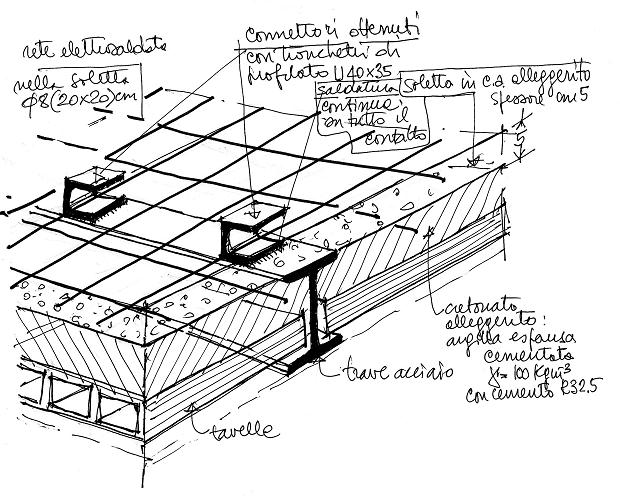 rete elettrosaldata
nella soletta
Φ8(20x20)cm
connettori ottenuti
con tronchetti di
profilato U40x35
saldatura
continua
in tutto il
contatto
soletta in c.a. alleggerito
spessore cm 5
5
cretonato
alleggerito:
argilla espansa
cementata
γ= 100 Kg/m³
con cemento R32.5
trave acciaio
tavelle